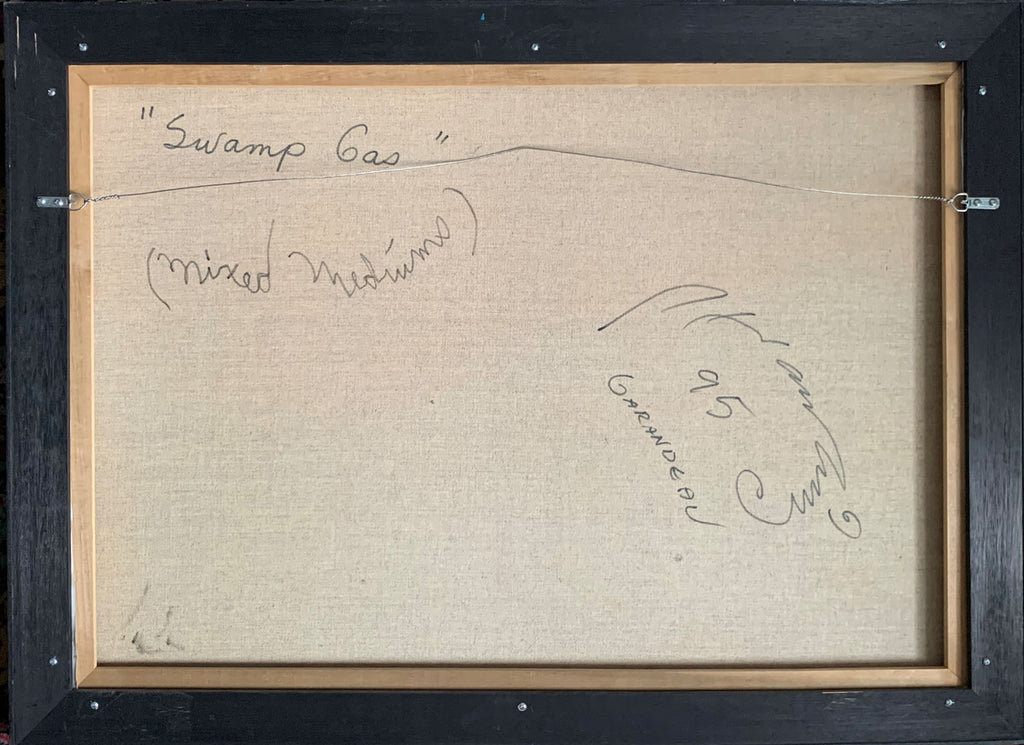 "Swamp Gas"
(Mixed Mediums)
95
GARANDEAU